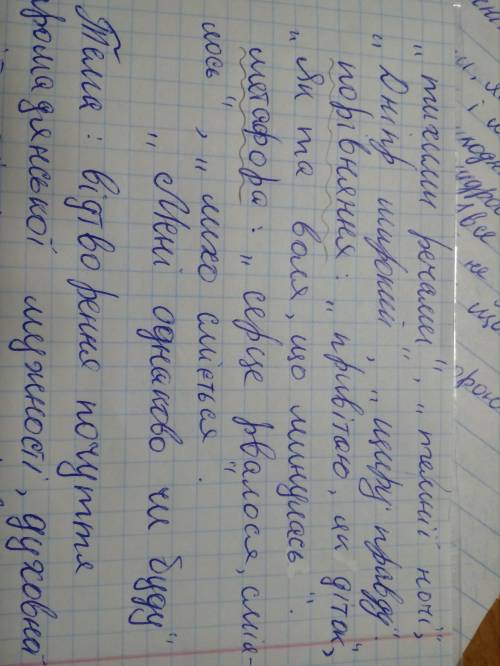 „тихими речами", „темнії ночі",
„Дніпр широкий", „щиру правду".
порівняння: „привітаю, як діток",
„Як та воля, що минулась".
метафора: „серце рвалося, смія-
лось", „лихо сміється".
„Мені однаково чи буду"
Тема: відтворення почуття
громадянської мужності, духовна